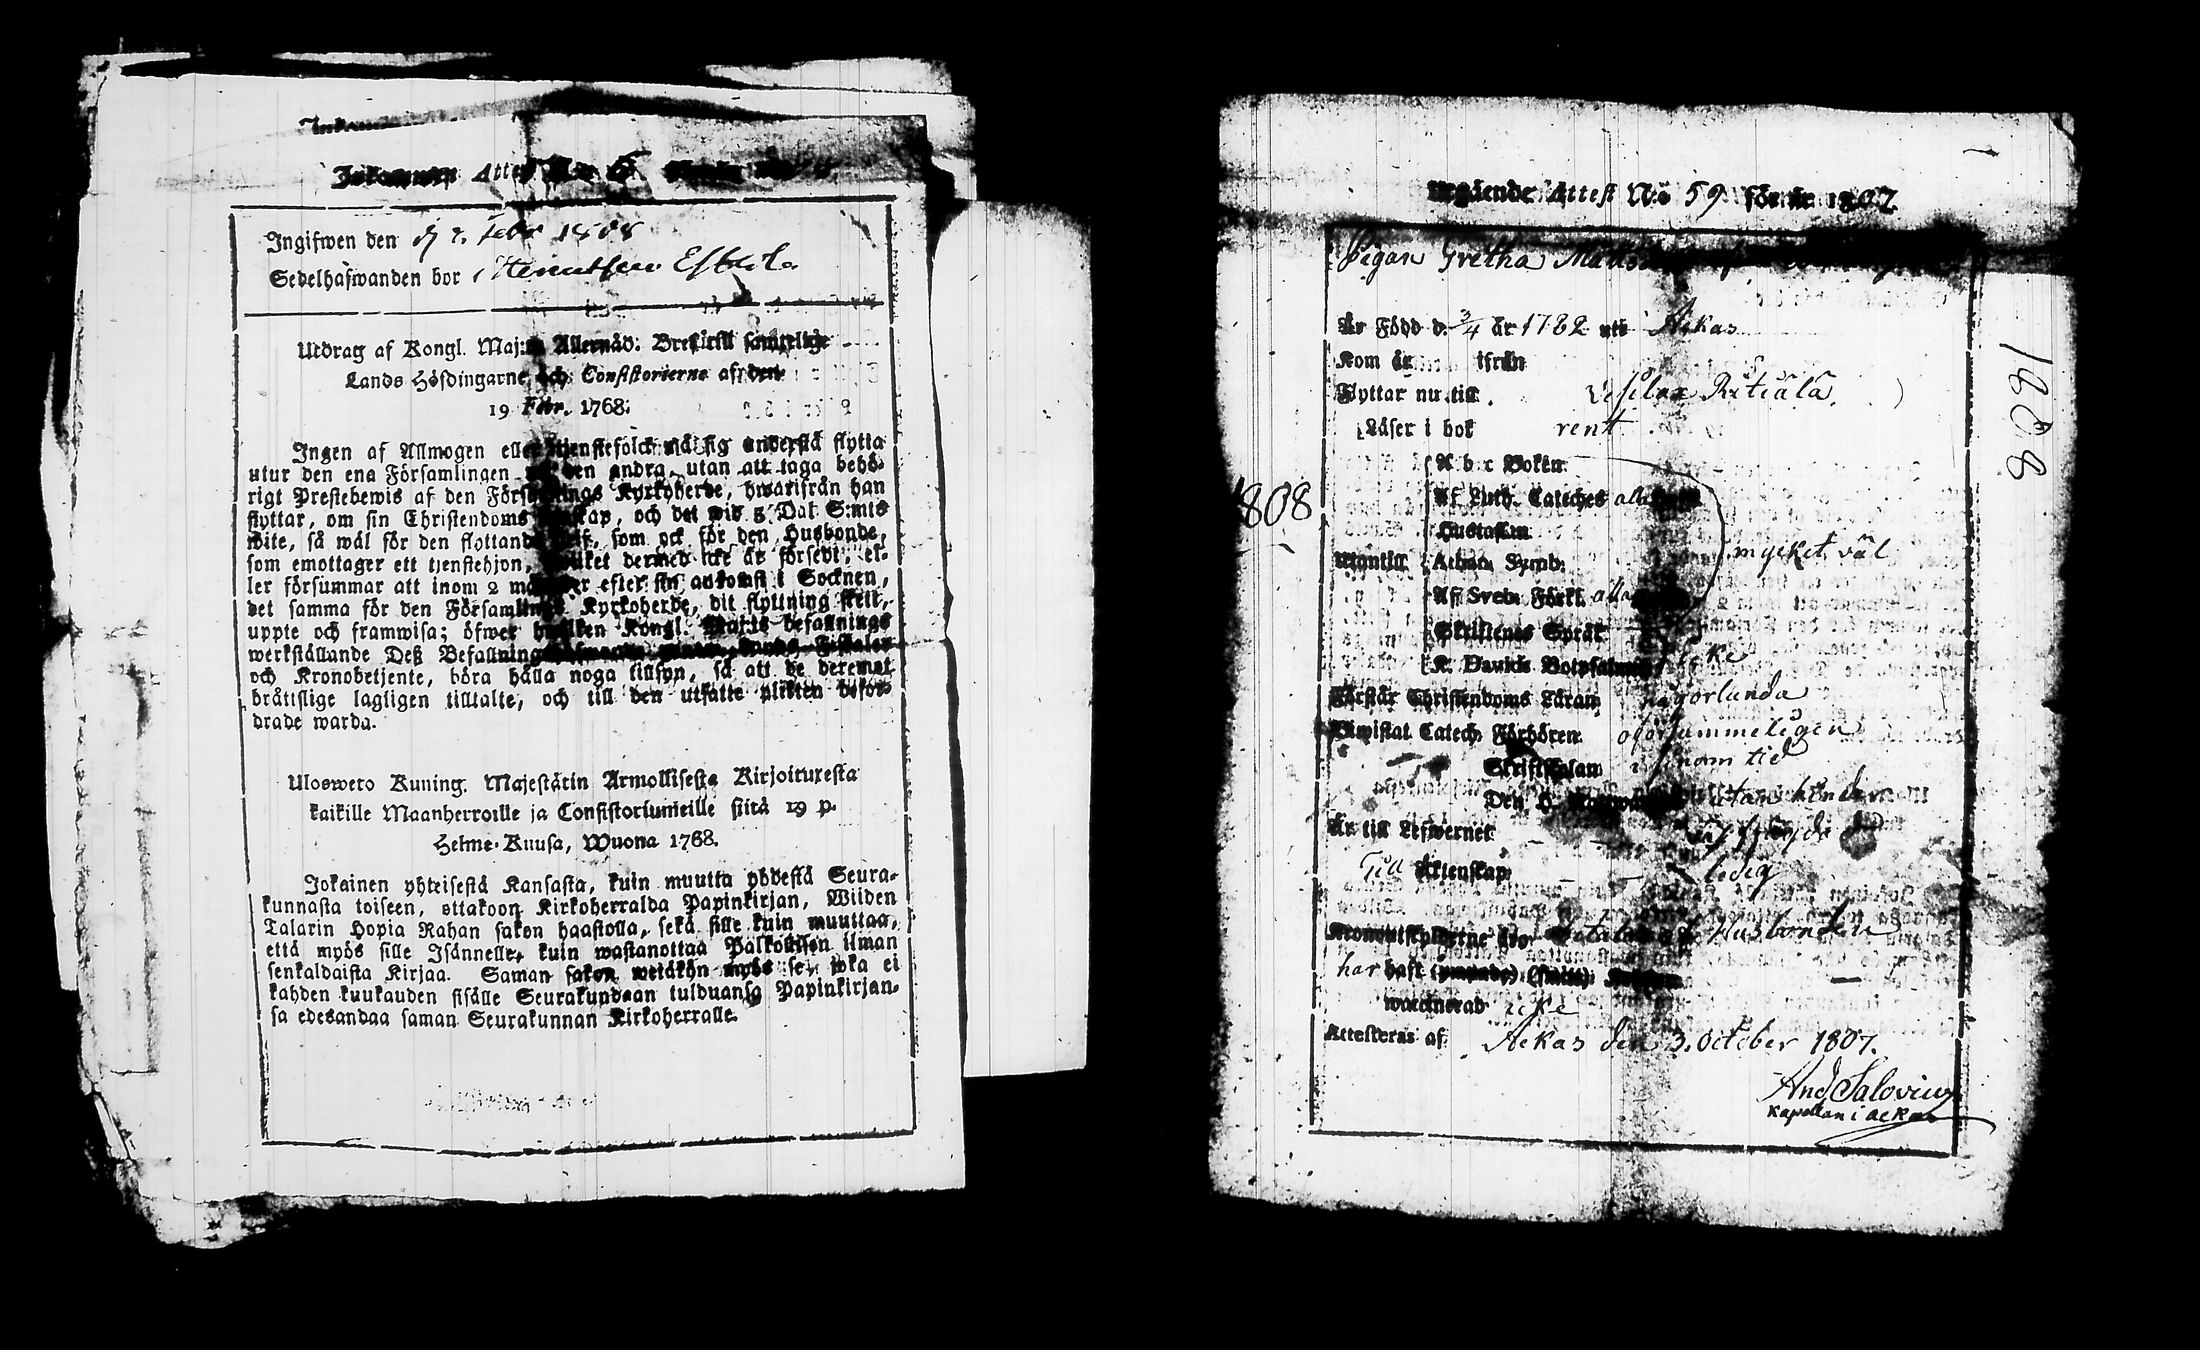 Inkomman Attest No 6
Ingifwen den d 7. Febr 1808
Sedelhafwanden bor i
Utdrag af Kongl. Maj:ts Allernåd: Bref till samtelige
Lands Höfdingarne och Consistorierne af den
19 Febr. 1768.
Ingen af Allmogen eller tjenstefolck må sig understå flytta
utur den ena Församlingen den andra, utan att taga behö-
rigt Prestebewis af den Församlings Kyrkoherde, hwarifrån han
flyttar, om sin Christendoms kunskap, och det wid 5 Dal. S:mts
wite, så wäl för den flyttande sielf, som ock för den Husbonde,
som emottager ett tjenstehjon, hwilket dermed icke är försedt, el-
ler försummar att inom 2 månader efter sin ankomst i Socknen,
det samma för den Församlings Kyrkoherde, dit flyttning skett,
uppte och framwisa; öfwer hwilken Kongl. Maj:ts befallnings
werkställande Deß Befallnings Fiskaler
och Kronobetjente, böra hålla noga tillsyn, så att de deremot
bråttslige lagligen tilltalte, och till den utsatte plikten befor-
drade warda.
Ulosweto Kuning. Majestätin Armollisesta Kirjoituxesta
kaikille Maanherroille ja Consistoriumeille siitä 19 p.
Helme-Kuusa, Wuona 1768.
Jokainen yhteisestä Kansasta, kuin muutta yhdestä Seura-
kunnasta toiseen, ottakoon Kirkoherralda Papinkirjan, Wiiden
Talarin Hopia Rahan sakon haastolla, sekä sille kuin muuttaa,
että myös sille Isännelle, kuin wastanottaa Palkollisen ilman
senkaldaista Kirjaa. Saman sakon wetäkön myös se, joka ei
kahden kuukauden sisälle Seurakundaan tulduansa Papinkirjan-
sa edesandaa saman Seurakunnan Kirkoherralle.
Utgående Attest No 59 för år 1807
Pigan Gretha
Är Född d. 3/4 år 1782 uti Ackas
Kom år ifrån
Flyttar nu till Vesilax Ritiala
Läser i bok rent
A b c Boken
1808
Af Luth. Cateches alla
Hustaflan
Muntill Athan. Symb. mycket väl
Af Sveb. Förkl. alla
Skriftenes Språk
K. Davids Botpsalmer icke
Förstår Christendoms Läran någorlunda
Bewistat Catech. Förhören oförsummeligen
Skriftskolan i sinom tid
Den H. utan hinder
Är till Lefwernet
Till Äktenskap ledig
Kronoutskylderne
har haft
waccinerad icke
Attesteras af Ackas den 3. October 1807.
And Salovius
Kapellan i Ackas
1808